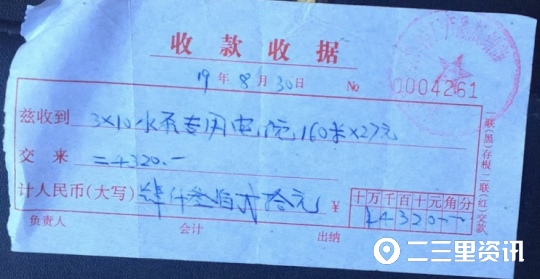 收款收据
19年8月30日 No 0004261
兹收到 3×10水泵专用电缆160米×27元
交来 =4320.-
计人民币(大写) 肆仟叁佰贰拾元 ¥ 十万千百十元角分
¥4320--
负责人 会计 出纳
一联(黑)存根 二联(红)交款
二三里资讯